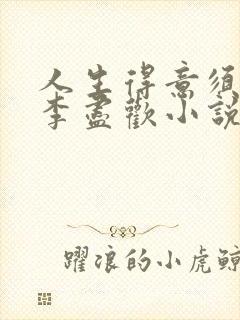 人生得意須
李盡歡小說
躍浪的小虎鯨